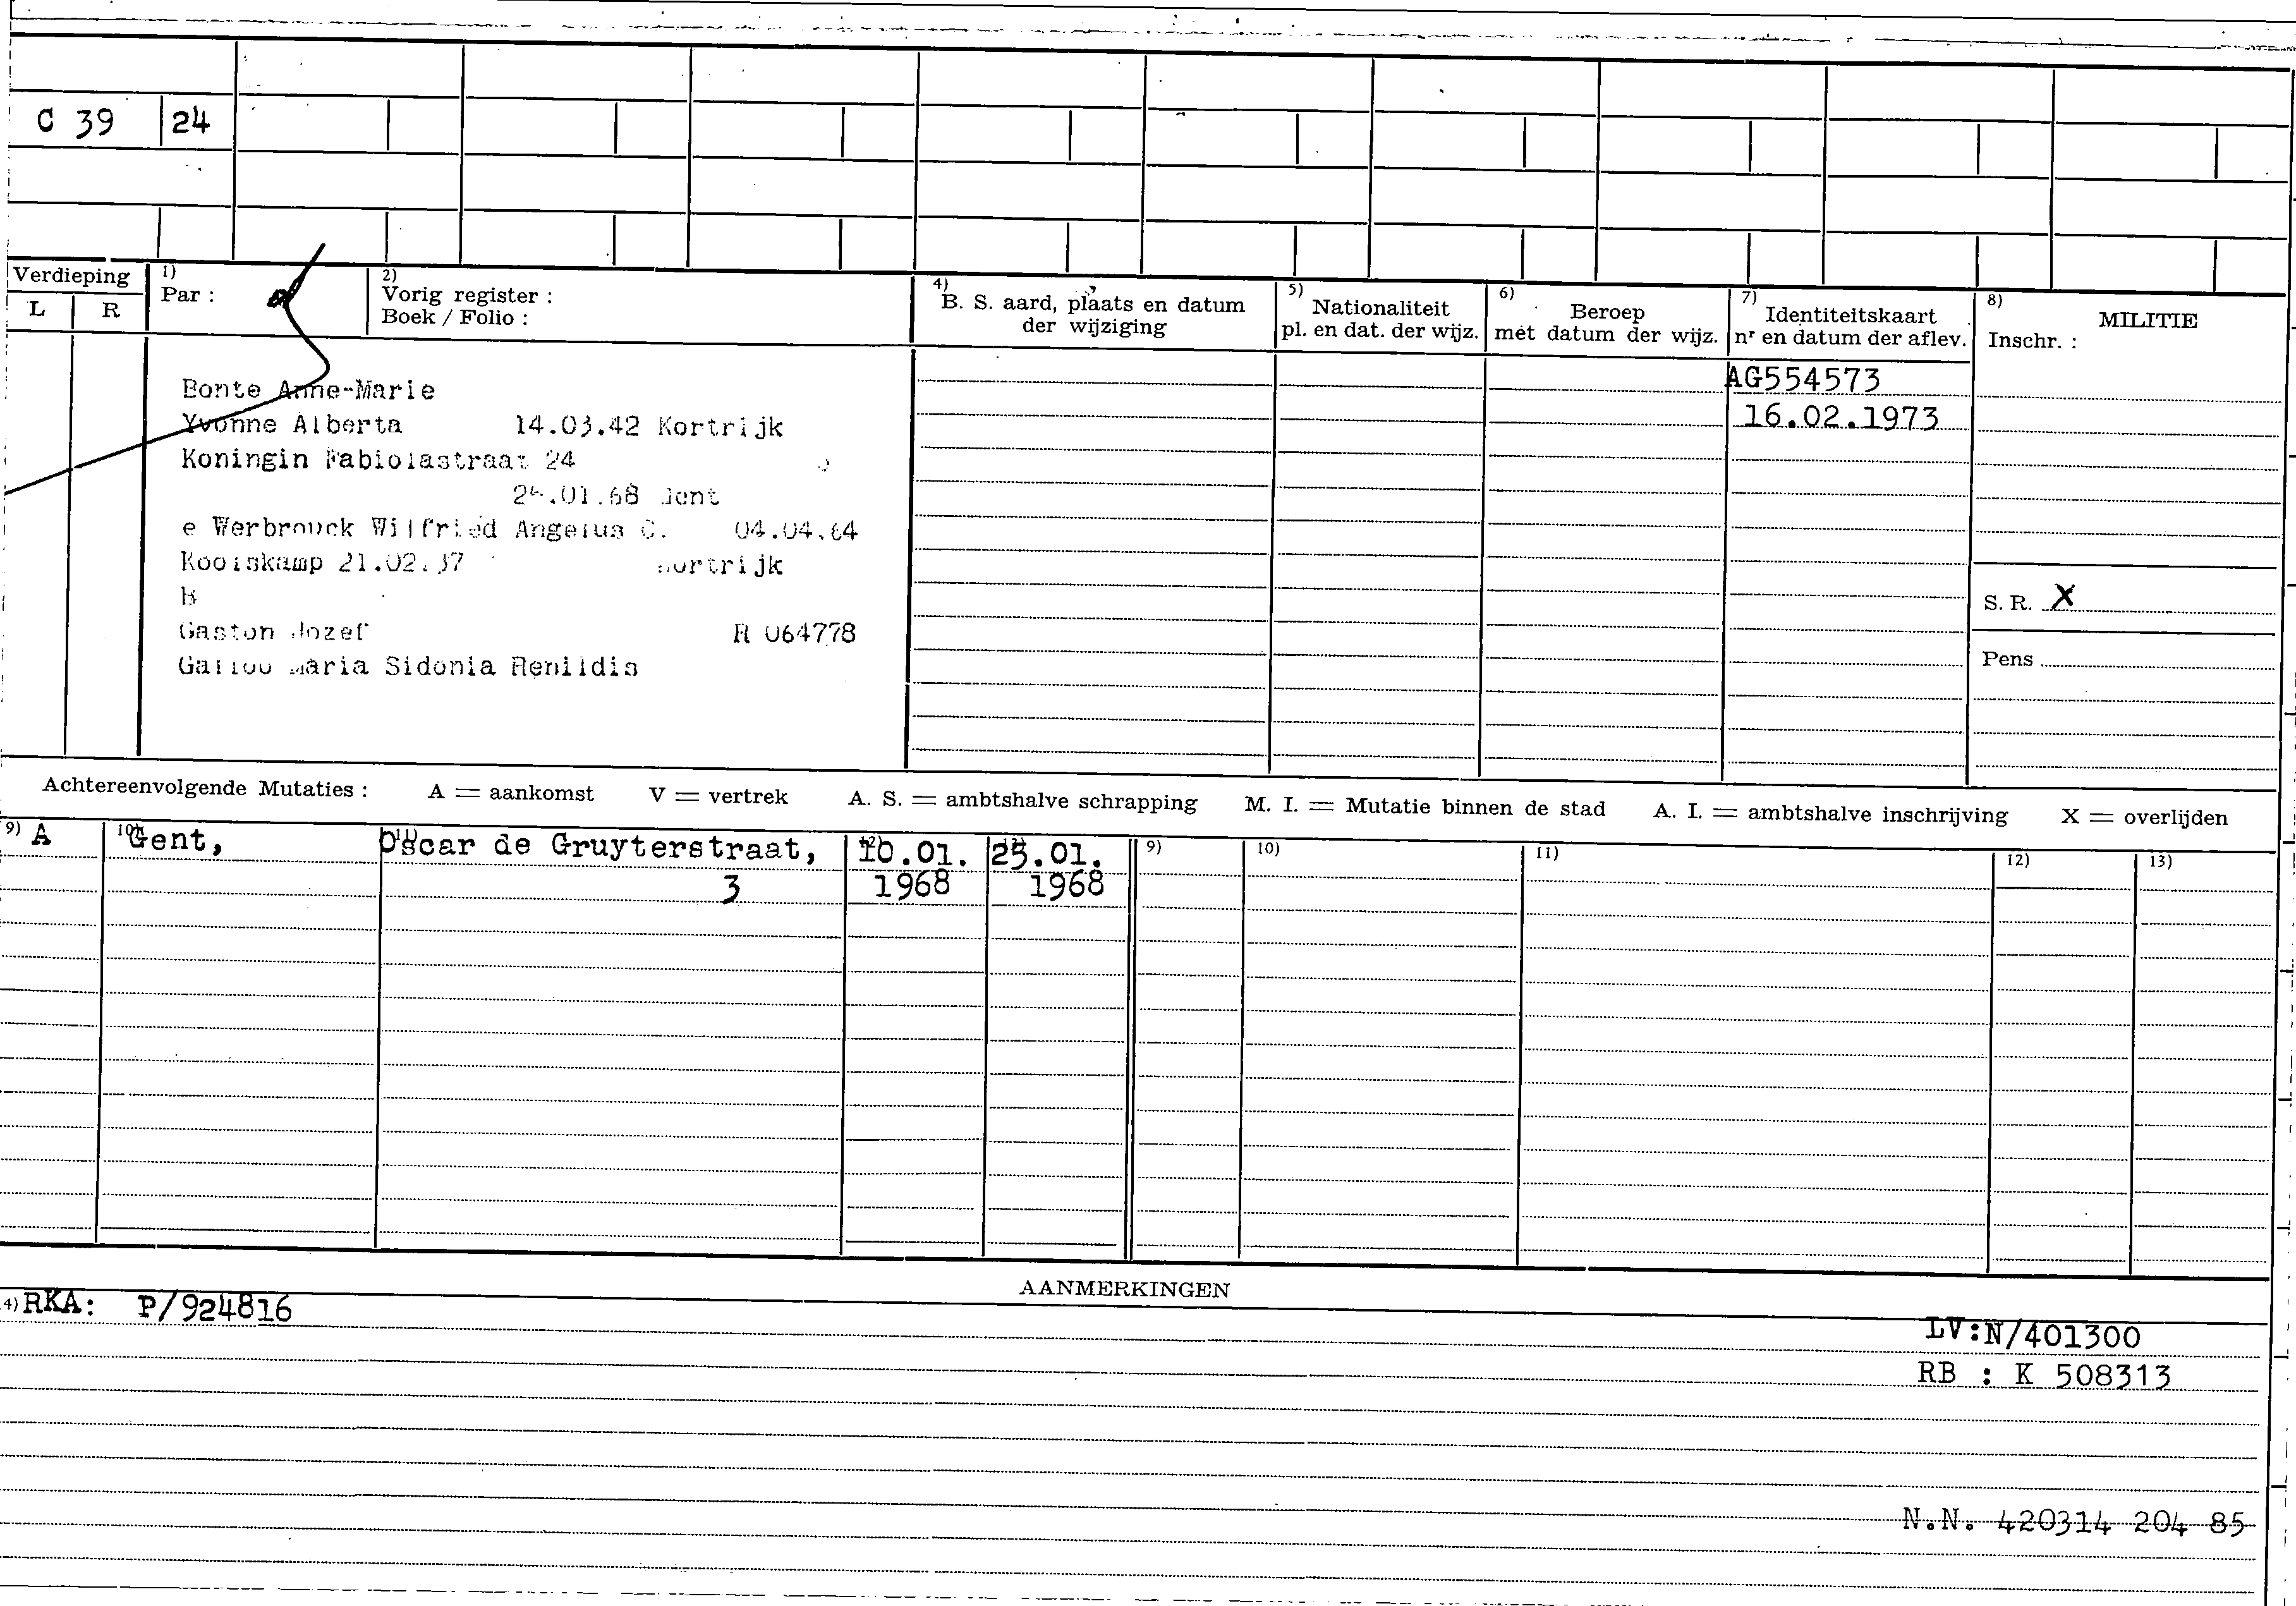 C 39 24
Verdieping
L R
1)
Par :
2)
Vorig register :
Boek / Folio :
4)
B. S. aard, plaats en datum
der wijziging
5)
Nationaliteit
pl. en dat. der wijz.
6)
Beroep
met datum der wijz.
7)
Identiteitskaart
nr en datum der aflev.
8)
MILITIE
Inschr. :
AG554573
16.02.1973
Bonte Anne-Marie
Yvonne Alberta 14.03.42 Kortrijk
Koningin Fabiolastraat 24
.01.68 Gent
e Werbrouck Wilfried Angelus C. 04.04.64
21.02.37 Kortrijk
b
Gaston Jozef R 064778
Maria Sidonia Renildis
S. R. X
Pens
Achtereenvolgende Mutaties : A = aankomst V = vertrek A. S. = ambtshalve schrapping M. I. = Mutatie binnen de stad A. I. = ambtshalve inschrijving X = overlijden
9) A 10) Gent, 11) Oscar de Gruyterstraat, 12) 10.01. 13) 25.01. 9) 10) 11) 12) 13)
3 1968 1968
AANMERKINGEN
4) RKA: P/924816
LV:N/401300
RB : K 508313
N.N. 420314 204 85